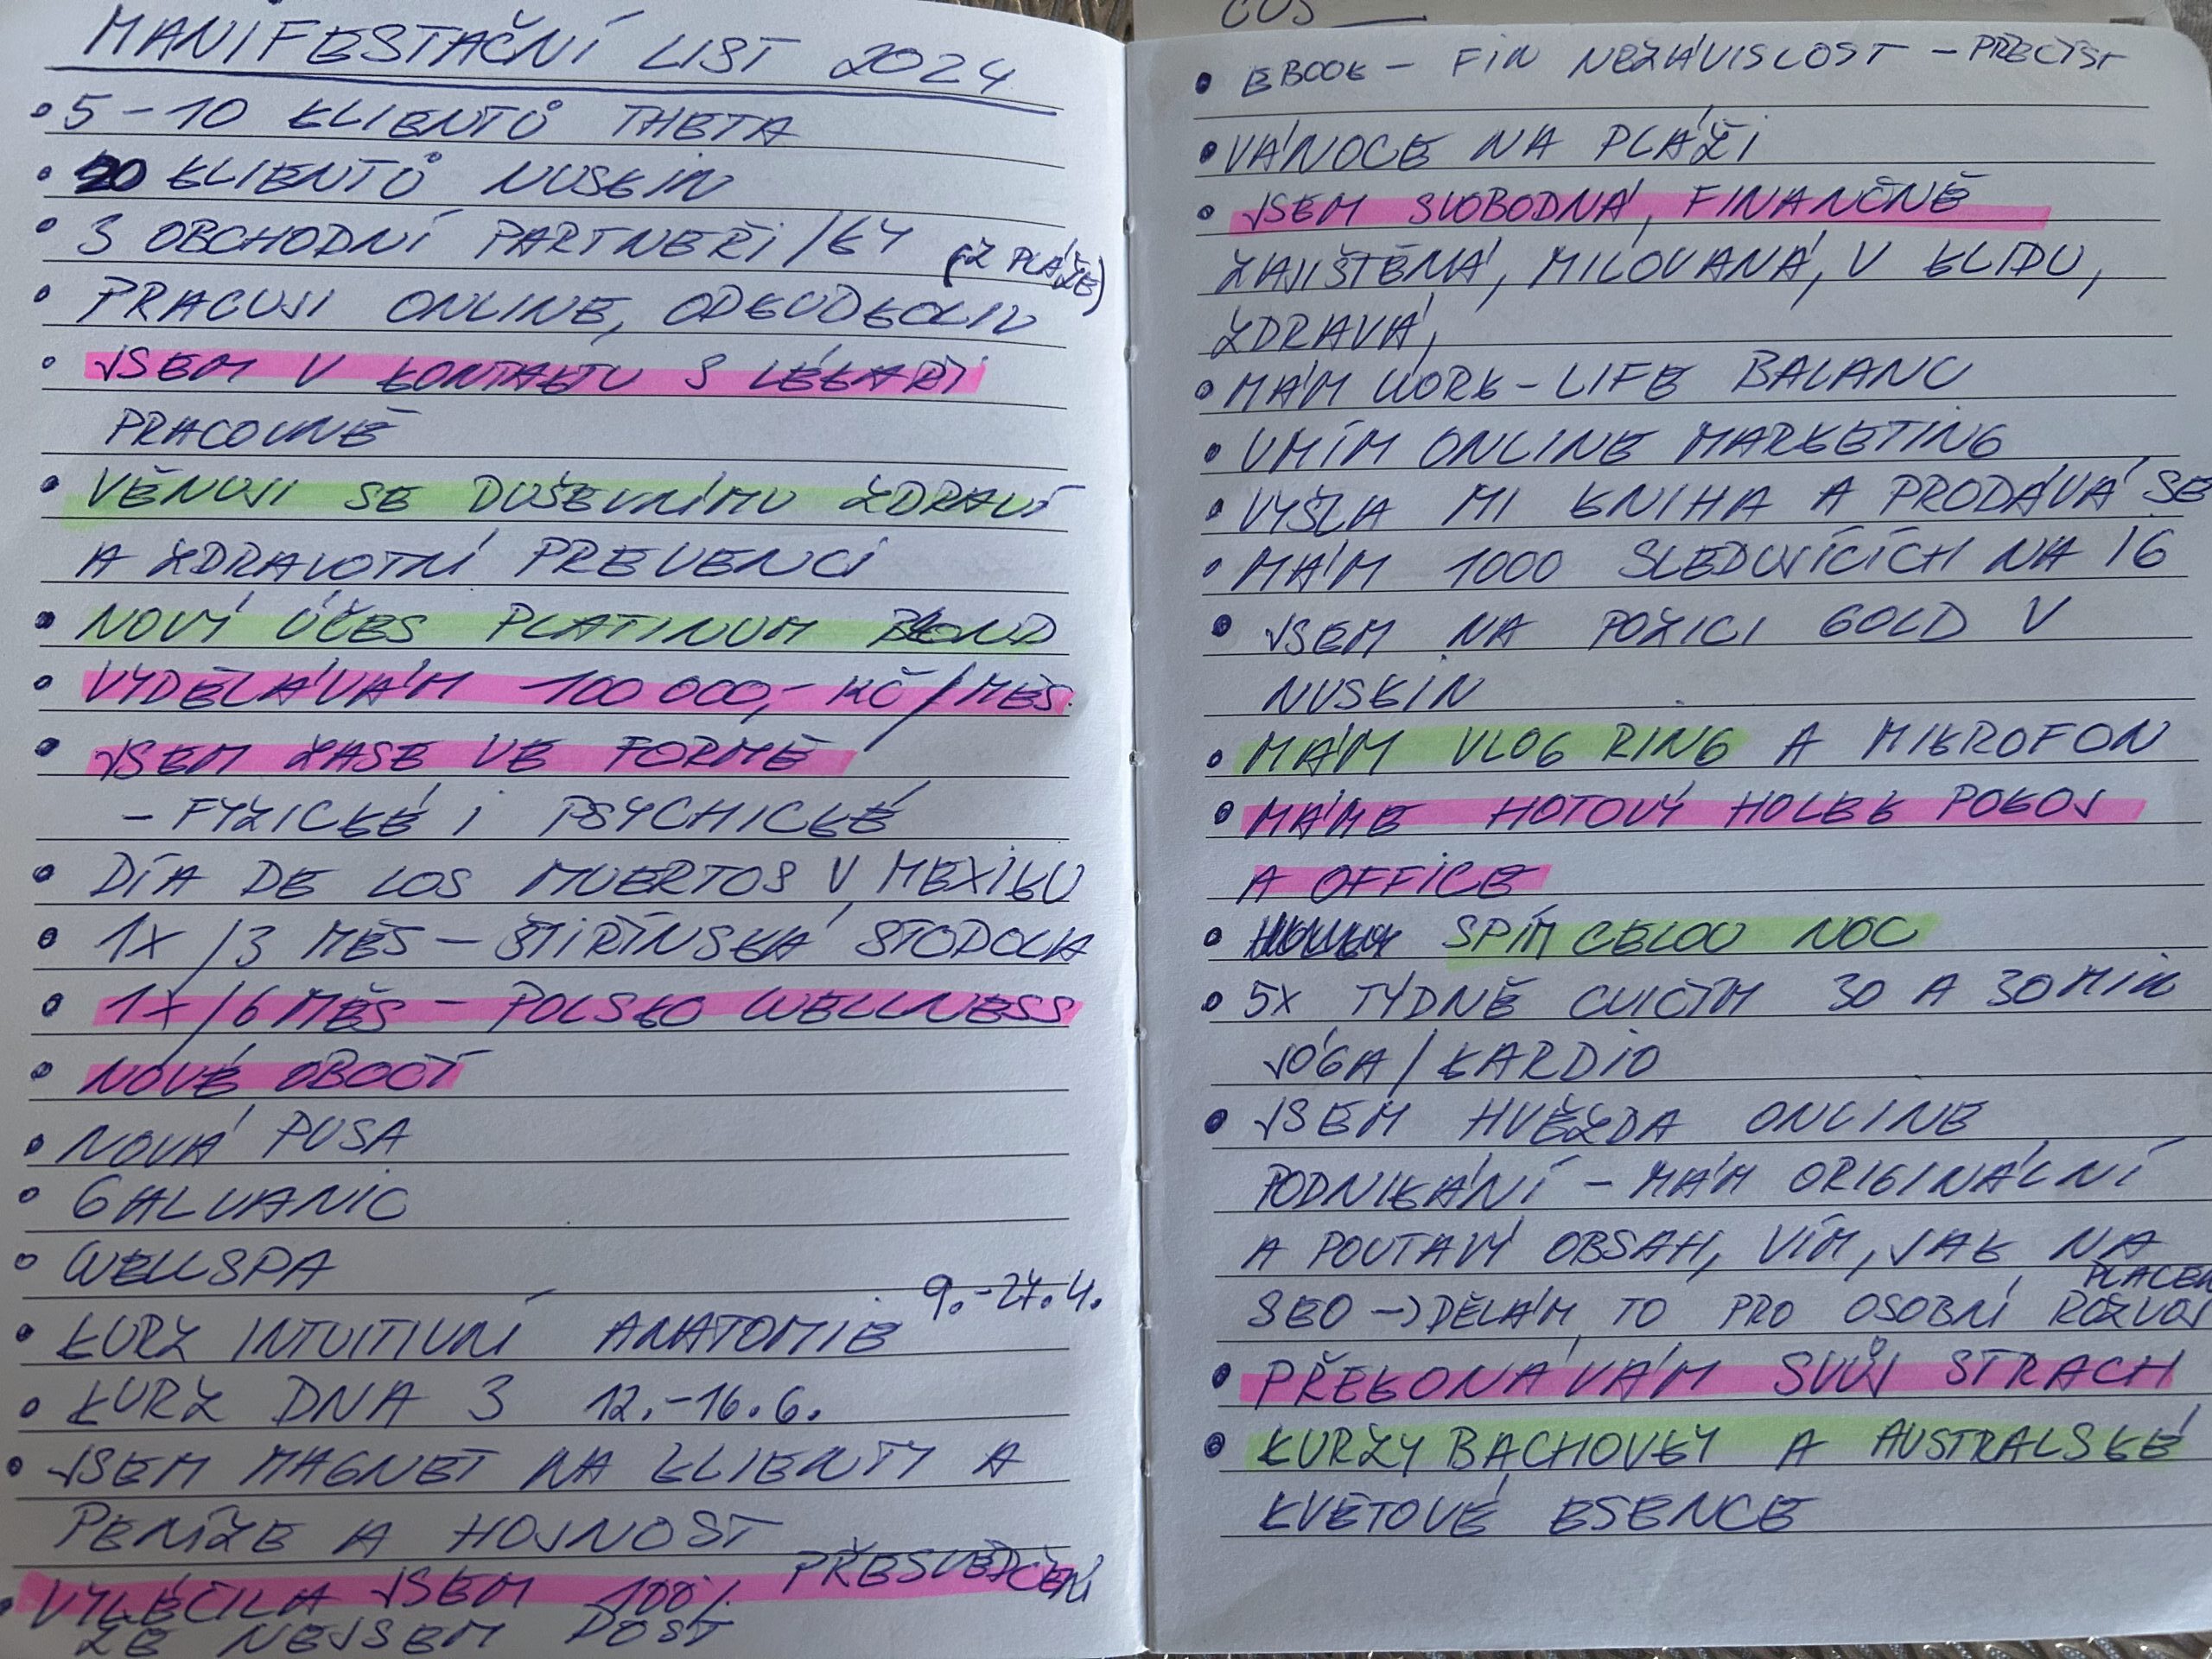 MANIFESTAČNÍ LIST 2024
• 5-10 KLIENTŮ THETA
• 20 KLIENTŮ NUSKIN
• 3 OBCHODNÍ PARTNEŘI/KY
(Z PLÁŽE)
• PRACUJI ONLINE, ODKUDKOLIV
• JSEM V KONTAKTU S LÉKAŘI
PRACOVNĚ
• VĚNUJI SE DUŠEVNÍMU ZDRAVÍ
A ZDRAVOTNÍ PREVENCI
• NOVÝ ÚČES PLATINUM BLOND
• VYDĚLÁVÁM 100 000,- KČ/MĚS.
• JSEM ZASE VE FORMĚ
- FYZICKÉ I PSYCHICKÉ
• DÍA DE LOS MUERTOS V MEXIKU
• 1X/3 MĚS - ŠTIŘÍNSKÁ STODOLA
• 1X/6 MĚS - POLSKO WELLNESS
• NOVÉ OBOČÍ
• NOVÁ PUSA
• GALVANIC
• WELLSPA
• KURZ INTUITIVNÍ ANATOMIE 9.-27.4.
• KURZ DNA 3 12.-16.6.
• JSEM MAGNET NA KLIENTY A
PENÍZE A HOJNOST
• VYLÉČILA JSEM 100% PŘESVĚDČENÍ
ŽE NEJSEM DOST
COS
• EBOOK - FIN NEZÁVISLOST - PŘEČÍST
• VÁNOCE NA PLÁŽI
• JSEM SVOBODNÁ, FINANČNĚ
ZAJIŠTĚNÁ, MILOVANÁ, V KLIDU,
ZDRAVÁ,
• MÁM WORK-LIFE BALANC
• UMÍM ONLINE MARKETING
• VYŠLA MI KNIHA A PRODÁVÁ SE
• MÁM 1000 SLEDUJÍCÍCH NA IG
• JSEM NA POZICI GOLD V
NUSKIN
• MÁM VLOG RING A MIKROFON
• MÁME HOTOVÝ HOLEK POKOJ
A OFFICE
• SPÍM CELOU NOC
• 5X TÝDNĚ CVIČÍM 30 A 30 MIN
JÓGA/KARDIO
• JSEM HVĚZDA ONLINE
PODNIKÁNÍ - MÁM ORIGINÁLNÍ
A POUTAVÝ OBSAH, VÍM, JAK NA
SEO → DĚLÁM TO PRO OSOBNÍ ROZVOJ
• PŘEKONÁVÁM SVŮJ STRACH
• KURZY BACHOVKY A AUSTRALSKÉ
KVĚTOVÉ ESENCE